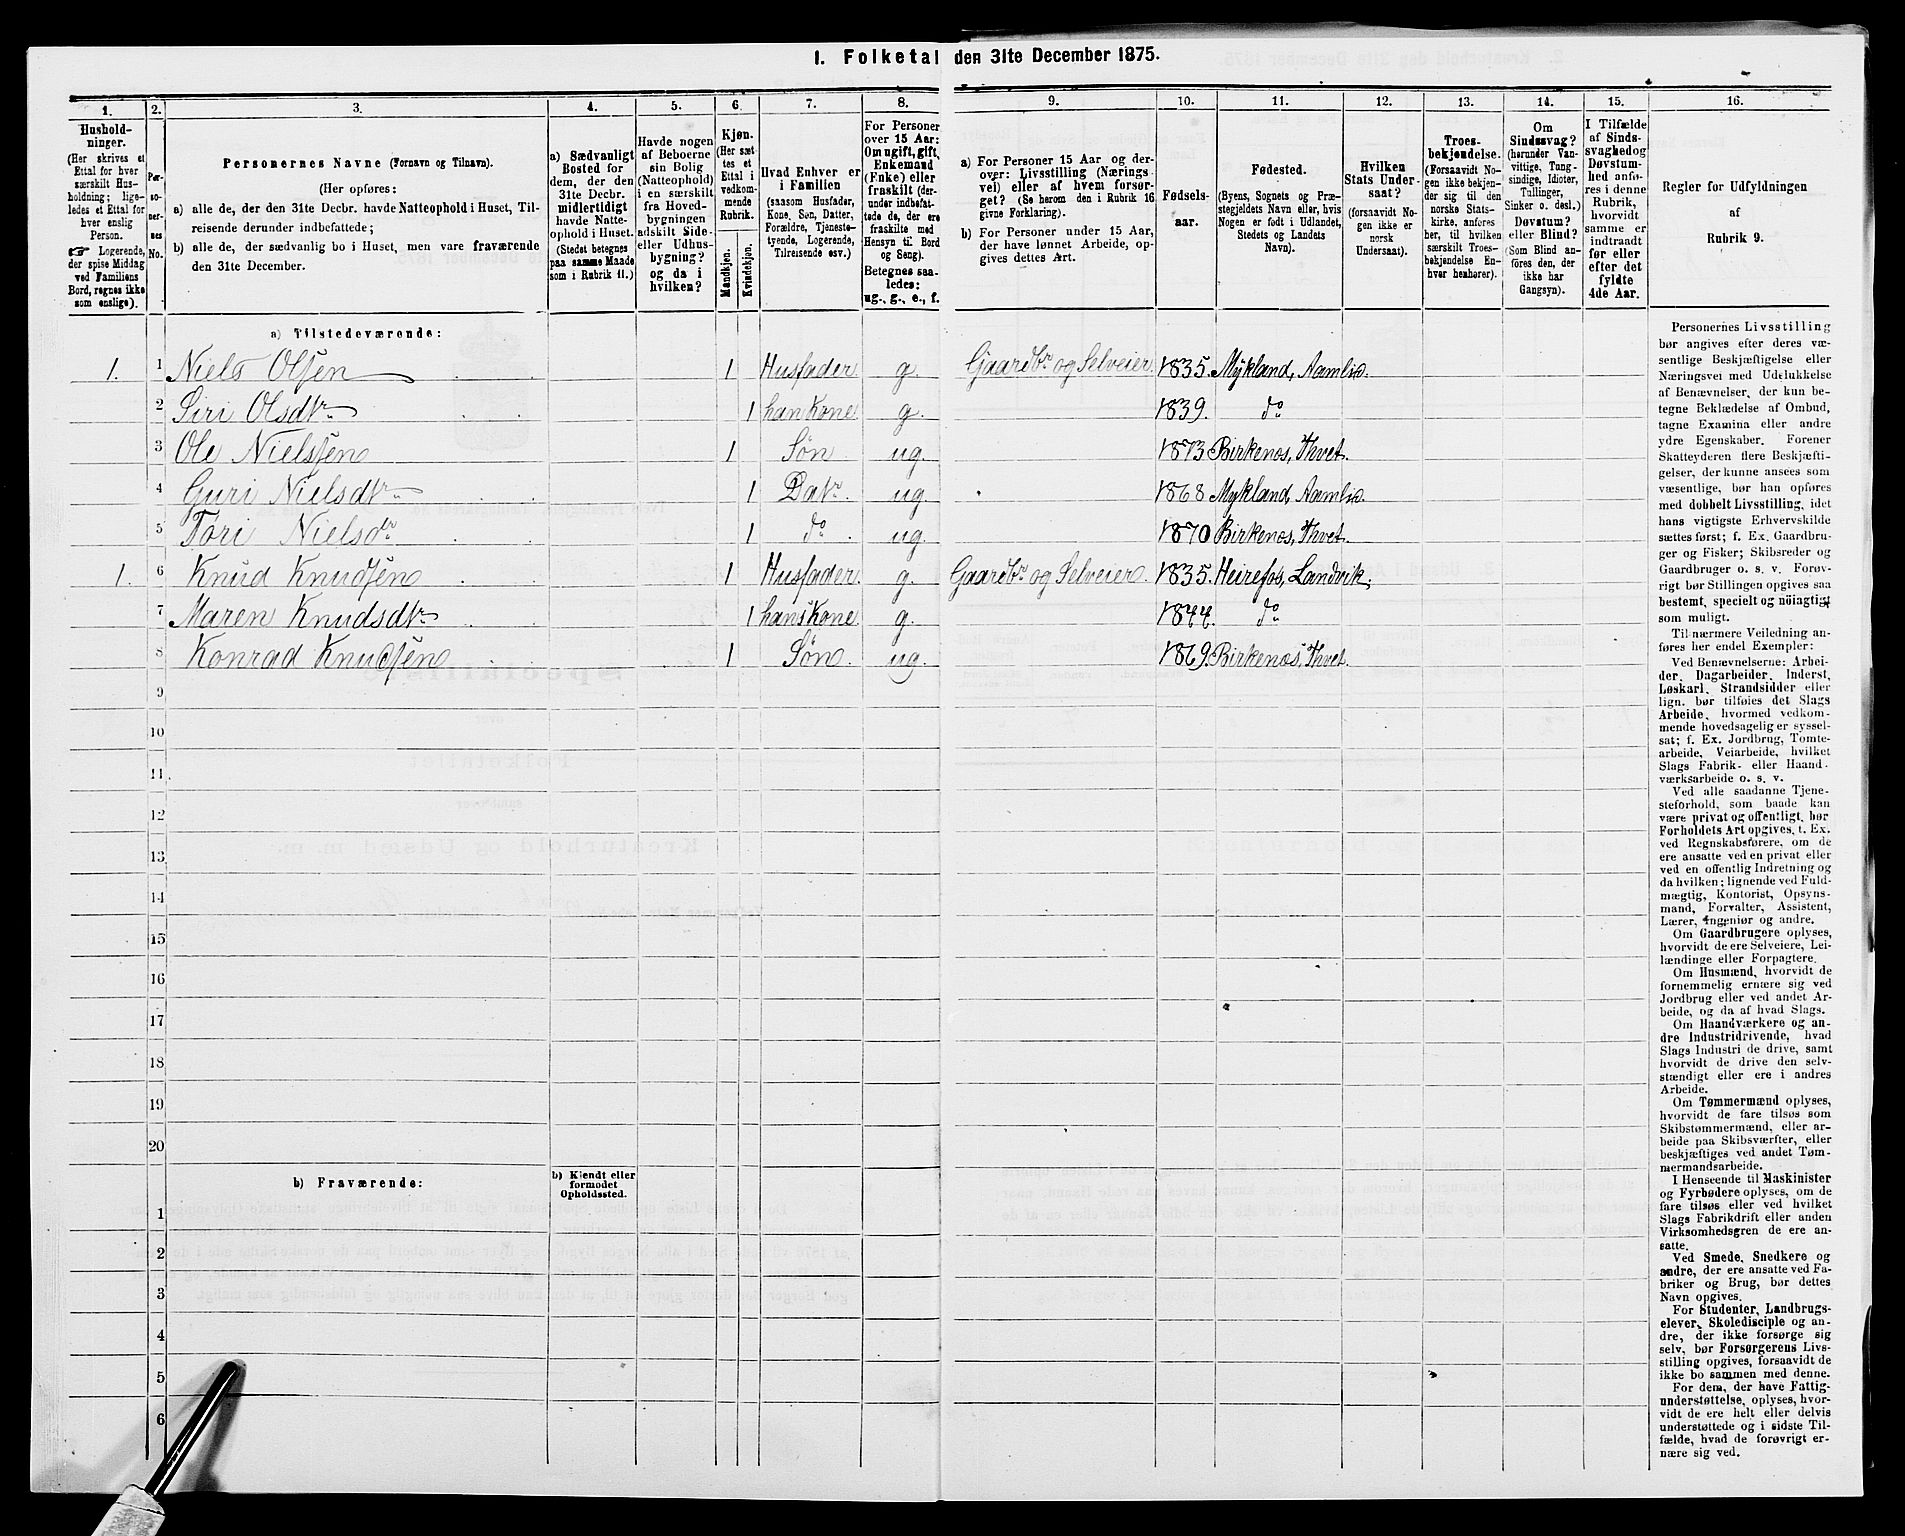 1. Folketal den 31te December 1875.
1. 2. 3. 4. 5. 6. 7. 8. 9. 10. 11. 12. 13. 14. 15. 16.
Hushold-
ninger.
(Her skrives et
Ettal for hver
særskilt Hus-
holdning; lige-
ledes et Ettal for
hver enslig
Person.
☞ Logerende,
der spise Middag
ved Familiens
Bord, regnes ikke
som enslige).
Per-
so-
ner-
nes
No.
Personernes Navne (Fornavn og Tilnavn).
(Her opføres:
a) alle de, der den 31te Decbr. havde Natteophold i Huset, Til-
reisende derunder indbefattede;
b) alle de, der sædvanlig bo i Huset, men vare fraværende
den 31te December.
a) Sædvanligt
Bosted for
dem, der den
31te Decbr.
midlertidigt
havde Natte-
ophold i Huset.
(Stedet betegnes
paa samme Maade
som i Rubrik 11.)
Havde nogen
af Beboerne
sin Bolig
(Natteophold)
i en særskilt
fra Hoved-
bygningen
adskilt Side-
eller Udhus-
bygning?
og da i
hvilken?
Kjøn.
(Her sæt-
tes et
Ettal i
vedkom-
mende
Rubrik.
Mandkjøn.
Kvindekjøn.
Hvad Enhver er
i Familien
(saasom Husfader,
Kone, Søn, Datter,
Forældre, Tjeneste-
tyende, Logerende,
Tilreisende osv.)
For Personer
over 15 Aar:
Om ugift, gift,
Enkemand
(Enke) eller
fraskilt (der-
under indbefat-
tede de, der ere
fraskilte med
Hensyn til Bord
og Seng).
Betegnes saa-
ledes:
ug., g., e., f.
a) For Personer 15 Aar og der-
over: Livsstilling (Nærings
vei) eller af hvem forsør-
get? (Se herom den i Rubrik 16
givne Forklaring).
b) For Personer under 15 Aar,
der have lønnet Arbeide, op-
gives dettes Art.
Fødsels-
aar.
Fødested.
(Byens, Sognets og Præ-
stegjeldets Navn eller, hvis
Nogen er født i Udlandet,
Stedets og Landets
Navn).
Hvilken
Stats Under-
saat?
(forsaavidt No-
gen ikke er
norsk
Undersaat).
Troes-
bekjendelse.
(Forsaavidt No-
gen ikke bekjen-
der sig til den
norske Stats-
kirke, anføres
her, til hvilken
særskilt Troes-
bekjendelse En-
hver henhører).
Om
Sindssvag?
(herunder Van-
vittige, Tung-
sindige, Idioter,
Tullinger,
Sinker o. desl.)
Døvstum?
eller Blind?
(Som Blind an-
føres den, der
ikke har
Gangsyn).
I Tilfælde
af Sinds-
svaghed og
Døvstum-
hed anfø-
res i denne
Rubrik,
hvorvidt
samme er
indtraadt
før eller
efter det
fyldte
4de Aar.
Regler for Udfyldningen
af
Rubrik 9.
a) Tilstedeværende:
1. 1 Niels Olsen 1 Husfader g. Gaardbr. og Selveier 1835. Mykland, Aamlid.
2 Siri Olsdtr. 1 hans Kone g. 1839. do
3 Ole Nielssen 1 Søn ug. 1873 Birkenæs, Thvet.
4 Guri Nielsdtr. 1 Datr. ug. 1868 Mykland, Aamlid.
5 Tori Nielsdtr 1 do. ug. 1870 Birkenæs, Thvet.
1. 6 Knud Knudsen 1 Husfader g. Gaardbr. og Selveier. 1835. Heirefos, Landvik.
7 Maren Knudsdtr. 1 hans Kone g. 1844. do
8 Konrad Knudsen 1 Søn. ug. 1869. Birkenæs, Thvet.
9
10
11
12
13
14
15
16
17
18
19
20
b) Fraværende:
b) Kjendt eller
formodet
Opholdssted.
1
2
3
4
5
6
Personernes Livsstilling
bør angives efter deres væ-
sentlige Beskjæftigelse eller
Næringsvei med Udelukkelse
af Benævnelser, der kun be-
tegne Beklædelse af Ombud,
tagne Examina eller andre
ydre Egenskaber. Forener
Skatteyderen flere Beskjæfti-
gelser, der kunne ansees som
væsentlige, bør han opføres
med dobbelt Livsstilling, idet
hans vigtigste Erhvervskilde
sættes først; f. Ex. Gaardbru-
ger og Fisker; Skibsreder og
Gaardbruger o. s. v. Forøv-
rigt bør Stillingen opgives saa
bestemt, specielt og nøiagtigt
som muligt.
Til nærmere Veiledning an-
føres her endel Exempler:
Ved Benævnelserne: Arbei-
der, Dagarbeider, Inderst,
Løskarl, Strandsidder eller
lign. bør tilføies det Slags
Arbeide, hvormed vedkom-
mende hovedsagelig er syssel-
sat; f. Ex. Jordbrug, Tomte-
arbeide, Veiarbeide, hvilket
Slags Fabrik- eller Haand-
værksarbeide o. s. v.
Ved alle saadanne Tjene-
steforhold, som baade kan
være privat og offentligt, bør
Forholdets Art opgives, t. Ex.
ved Regnskabsførere, om de
ere ansatte ved en privat eller
ved en offentlig Indretning og
da hvilken; lignende ved Fuld-
mægtig, Kontorist, Opsyns-
mand, Forvalter, Assistent,
Lærer, Ingeniør og andre.
Om Gaardbrugere oplyses,
hvorvidt de ere Selveiere, Lei-
lændinge eller Forpagtere.
Om Husmænd, hvorvidt de
fornemmelig ernære sig ved
Jordbrug eller ved andet Ar-
beide, og da af hvad Slags.
Om Haandværkere og an-
dre Industridrivende, hvad
Slags Industri de drive, samt
hvorvidt de drive den selv-
stændigt eller ere i andres
Arbeide.
Om Tømmermænd oplyses,
hvorvidt de fare tilsøs som
Skibstømmermænd, eller ar-
beide paa Skibsværfter, eller
beskjæftiges ved andet Tøm-
mermandsarbeide.
I Henseende til Maskinister
og Fyrbødere oplyses, om de
fare tilsøs eller ved hvilket
Slags Fabrikdrift eller anden
Virksomhedsgren de ere an-
satte.
Ved Smede, Snedkere og
andre, der ere ansatte ved Fa-
briker og Brug, bør dettes
Navn opgives.
For Studenter, Landbrugs-
elever, Skoledisciple og an-
dre, der ikke forsørge sig
selv, bør Forsørgerens Livs-
stilling opgives, forsaavidt de
ikke bo sammen med denne.
For dem, der have Fattig-
understøttelse, oplyses, hvor-
vidt de ere helt eller delvis
understøttede og i sidste Til-
fælde, hvad de forøvrigt er-
nære sig ved.